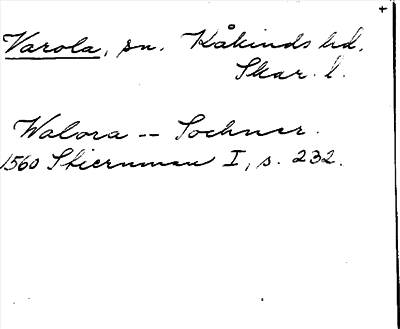 +
Varola, sn. Kåkinds hd.
Skar. l.
Walora -- Sochner.
1560 Stiernman I, s. 232.